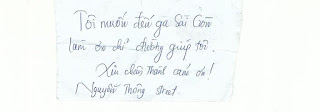 Tôi muốn đến ga Sài Gòn
làm ơn chỉ đường giúp tôi.
Xin chân thành cảm ơn!
Nguyễn Thông street.